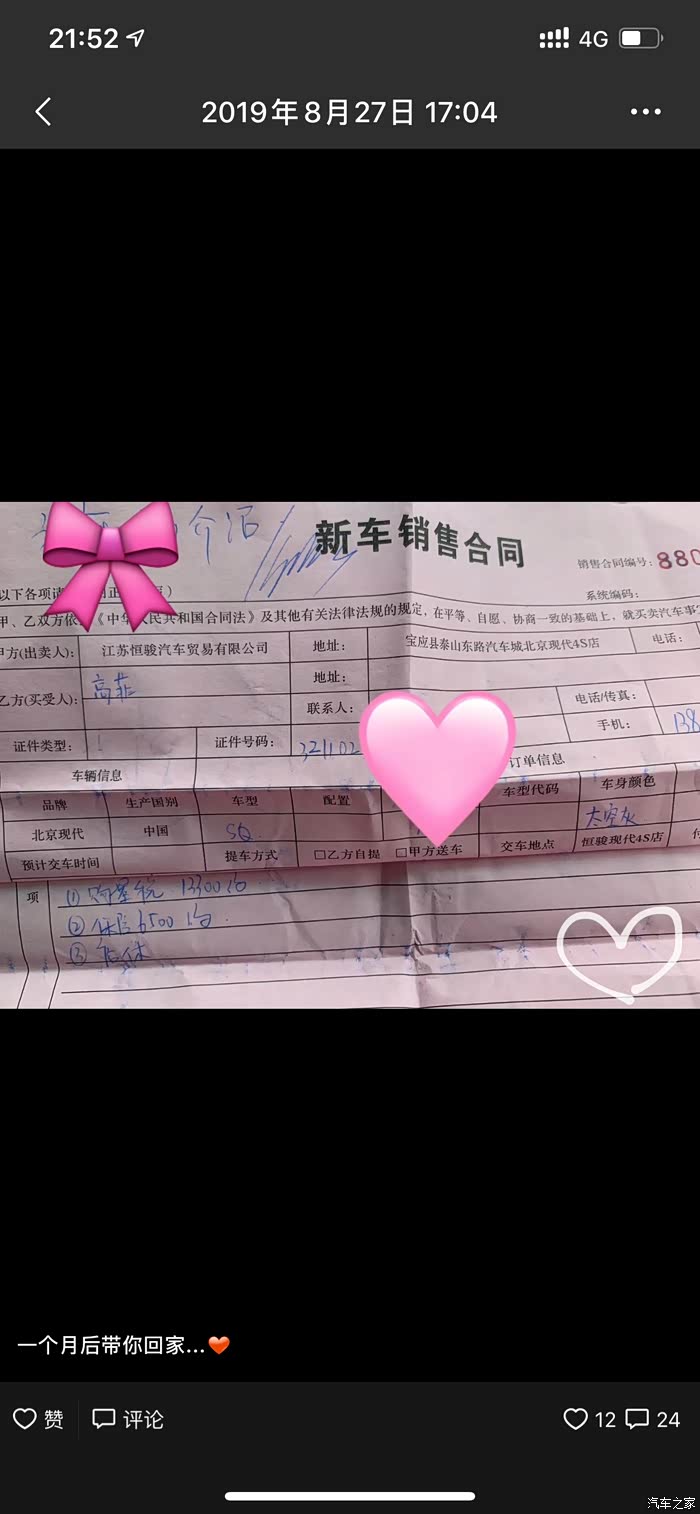 21:52 4G
2019年8月27日 17:04
介绍
新车销售合同
销售合同编号: 880
系统编码:
以下各项请
甲、乙双方依 《中华人民共和国合同法》及其他有关法律法规的规定, 在平等、自愿、协商一致的基础上, 就买卖汽车事
甲方(出卖人): 江苏恒骏汽车贸易有限公司 地址: 宝应县泰山东路汽车城北京现代4S店 电话:
乙方(买受人): 高菲 地址:
联系人: 电话/传真:
证件类型: 证件号码: 321102 手机: 138
车辆信息 订单信息
品牌 生产国别 车型 配置 车型代码 车身颜色
北京现代 中国 SQ 太空灰
预计交车时间 提车方式 □乙方自提 □甲方送车 交车地点 恒骏现代4S店 付
项 ① 购置税 13300
② 保险 6500
③
一个月后带你回家...
赞 评论 12 24
汽车之家